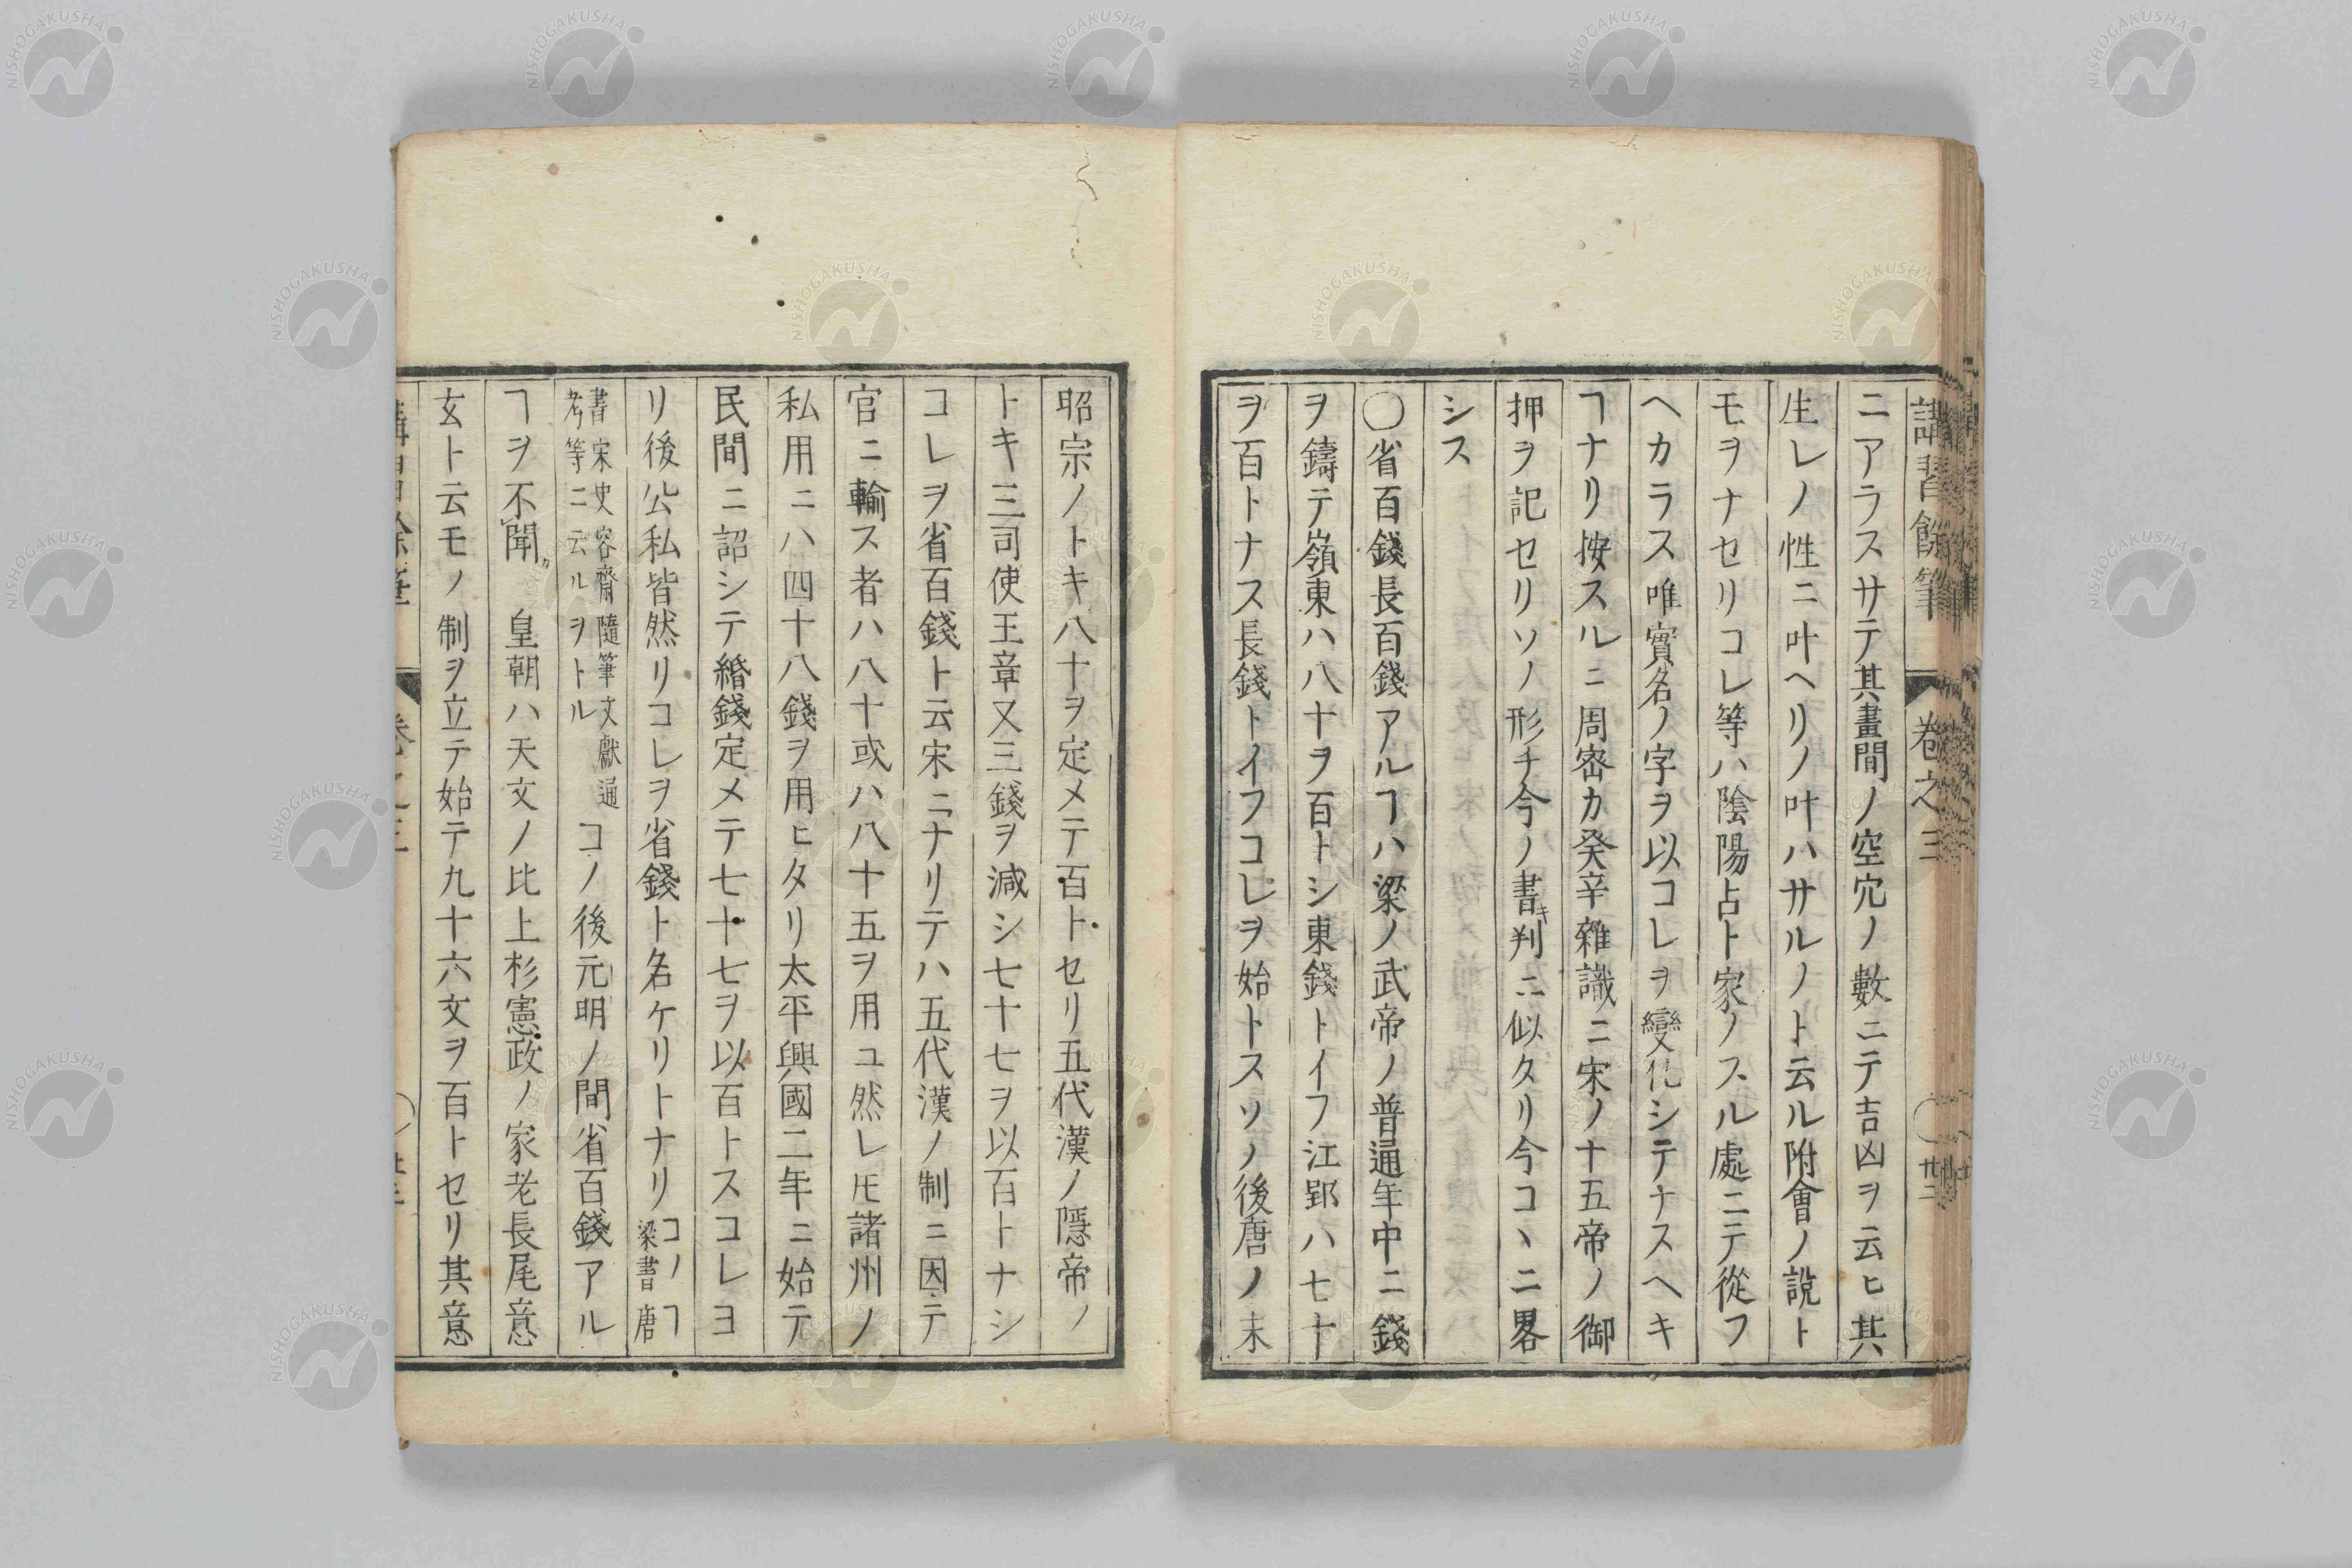 講習餘筆 卷之三 廿二
ニアラスサテ其畫間ノ空穴ノ數ニテ吉凶ヲ云ヒ其
生レノ性ニ叶ヘリノ叶ハサルノト云ル附會ノ說ト
モヲナセリコレ等ハ陰陽占ト家ノスル處ニテ從フ
ヘカラス唯實名ノ字ヲ以コレヲ變化シテナスヘキ
ヿナリ按スルニ周密カ癸辛雜識ニ宋ノ十五帝ノ御
押ヲ記セリソノ形チ今ノ書キ判ニ似タリ今コヽニ畧
シス
〇省百錢長百錢アルヿハ梁ノ武帝ノ普通年中ニ錢
ヲ鑄テ嶺東ハ八十ヲ百トシ東錢トイフ江郢ハ七十
ヲ百トナス長錢トイフコレヲ始トスソノ後唐ノ末
昭宗ノトキ八十ヲ定メテ百トセリ五代漢ノ隱帝ノ
トキ三司使王章又三錢ヲ減シ七十七ヲ以百トナシ
コレヲ省百錢ト云宋ニナリテハ五代漢ノ制ニ因テ
官ニ輸ス者ハ八十或ハ八十五ヲ用ユ然レ𪜈諸州ノ
私用ニハ四十八錢ヲ用ヒタリ太平興國二年ニ始テ
民間ニ詔シテ緡錢定メテ七十七ヲ以百トスコレヨ
リ後公私皆然リコレヲ省錢ト名ケリトナリ コノヿ梁書唐
書宋史容齋隨筆文獻通考等ニ云ルヲトル コノ後元明ノ間省百錢アル
ヿヲ不聞 皇朝ハ天文ノ比上杉憲政ノ家老長尾意
玄ト云モノ制ヲ立テ始テ九十六文ヲ百トセリ其意